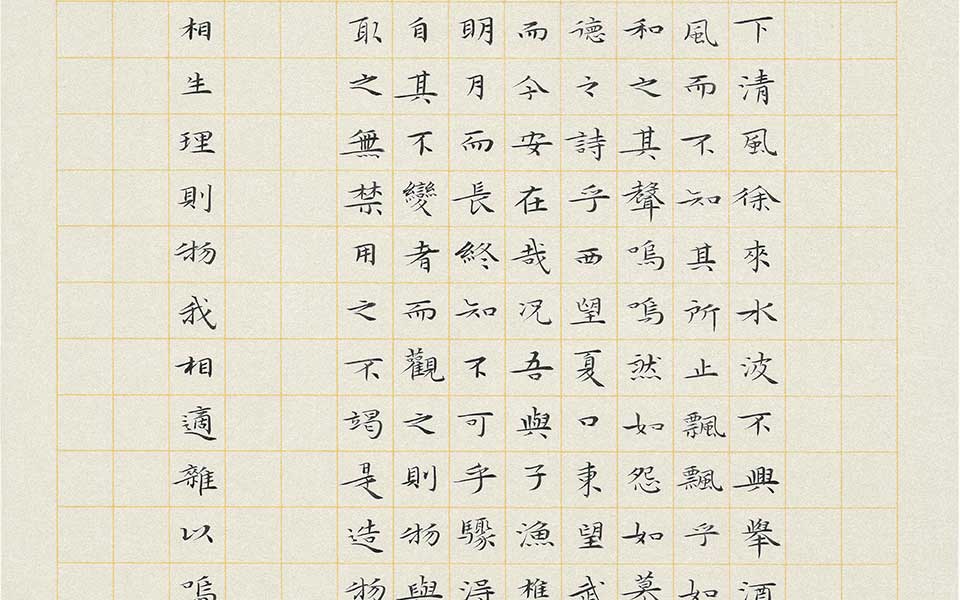 下清風徐來水波不興舉酒
風而不知其所止飄飄乎如
和之其聲嗚嗚然如怨如慕
德之詩乎西望夏口東望武
而今安在哉况吾與子漁樵
明月而長終知不可乎驟得
自其不變者而觀之則物與
取之無禁用之不竭是造物
相生理則物我相適雜以嗚